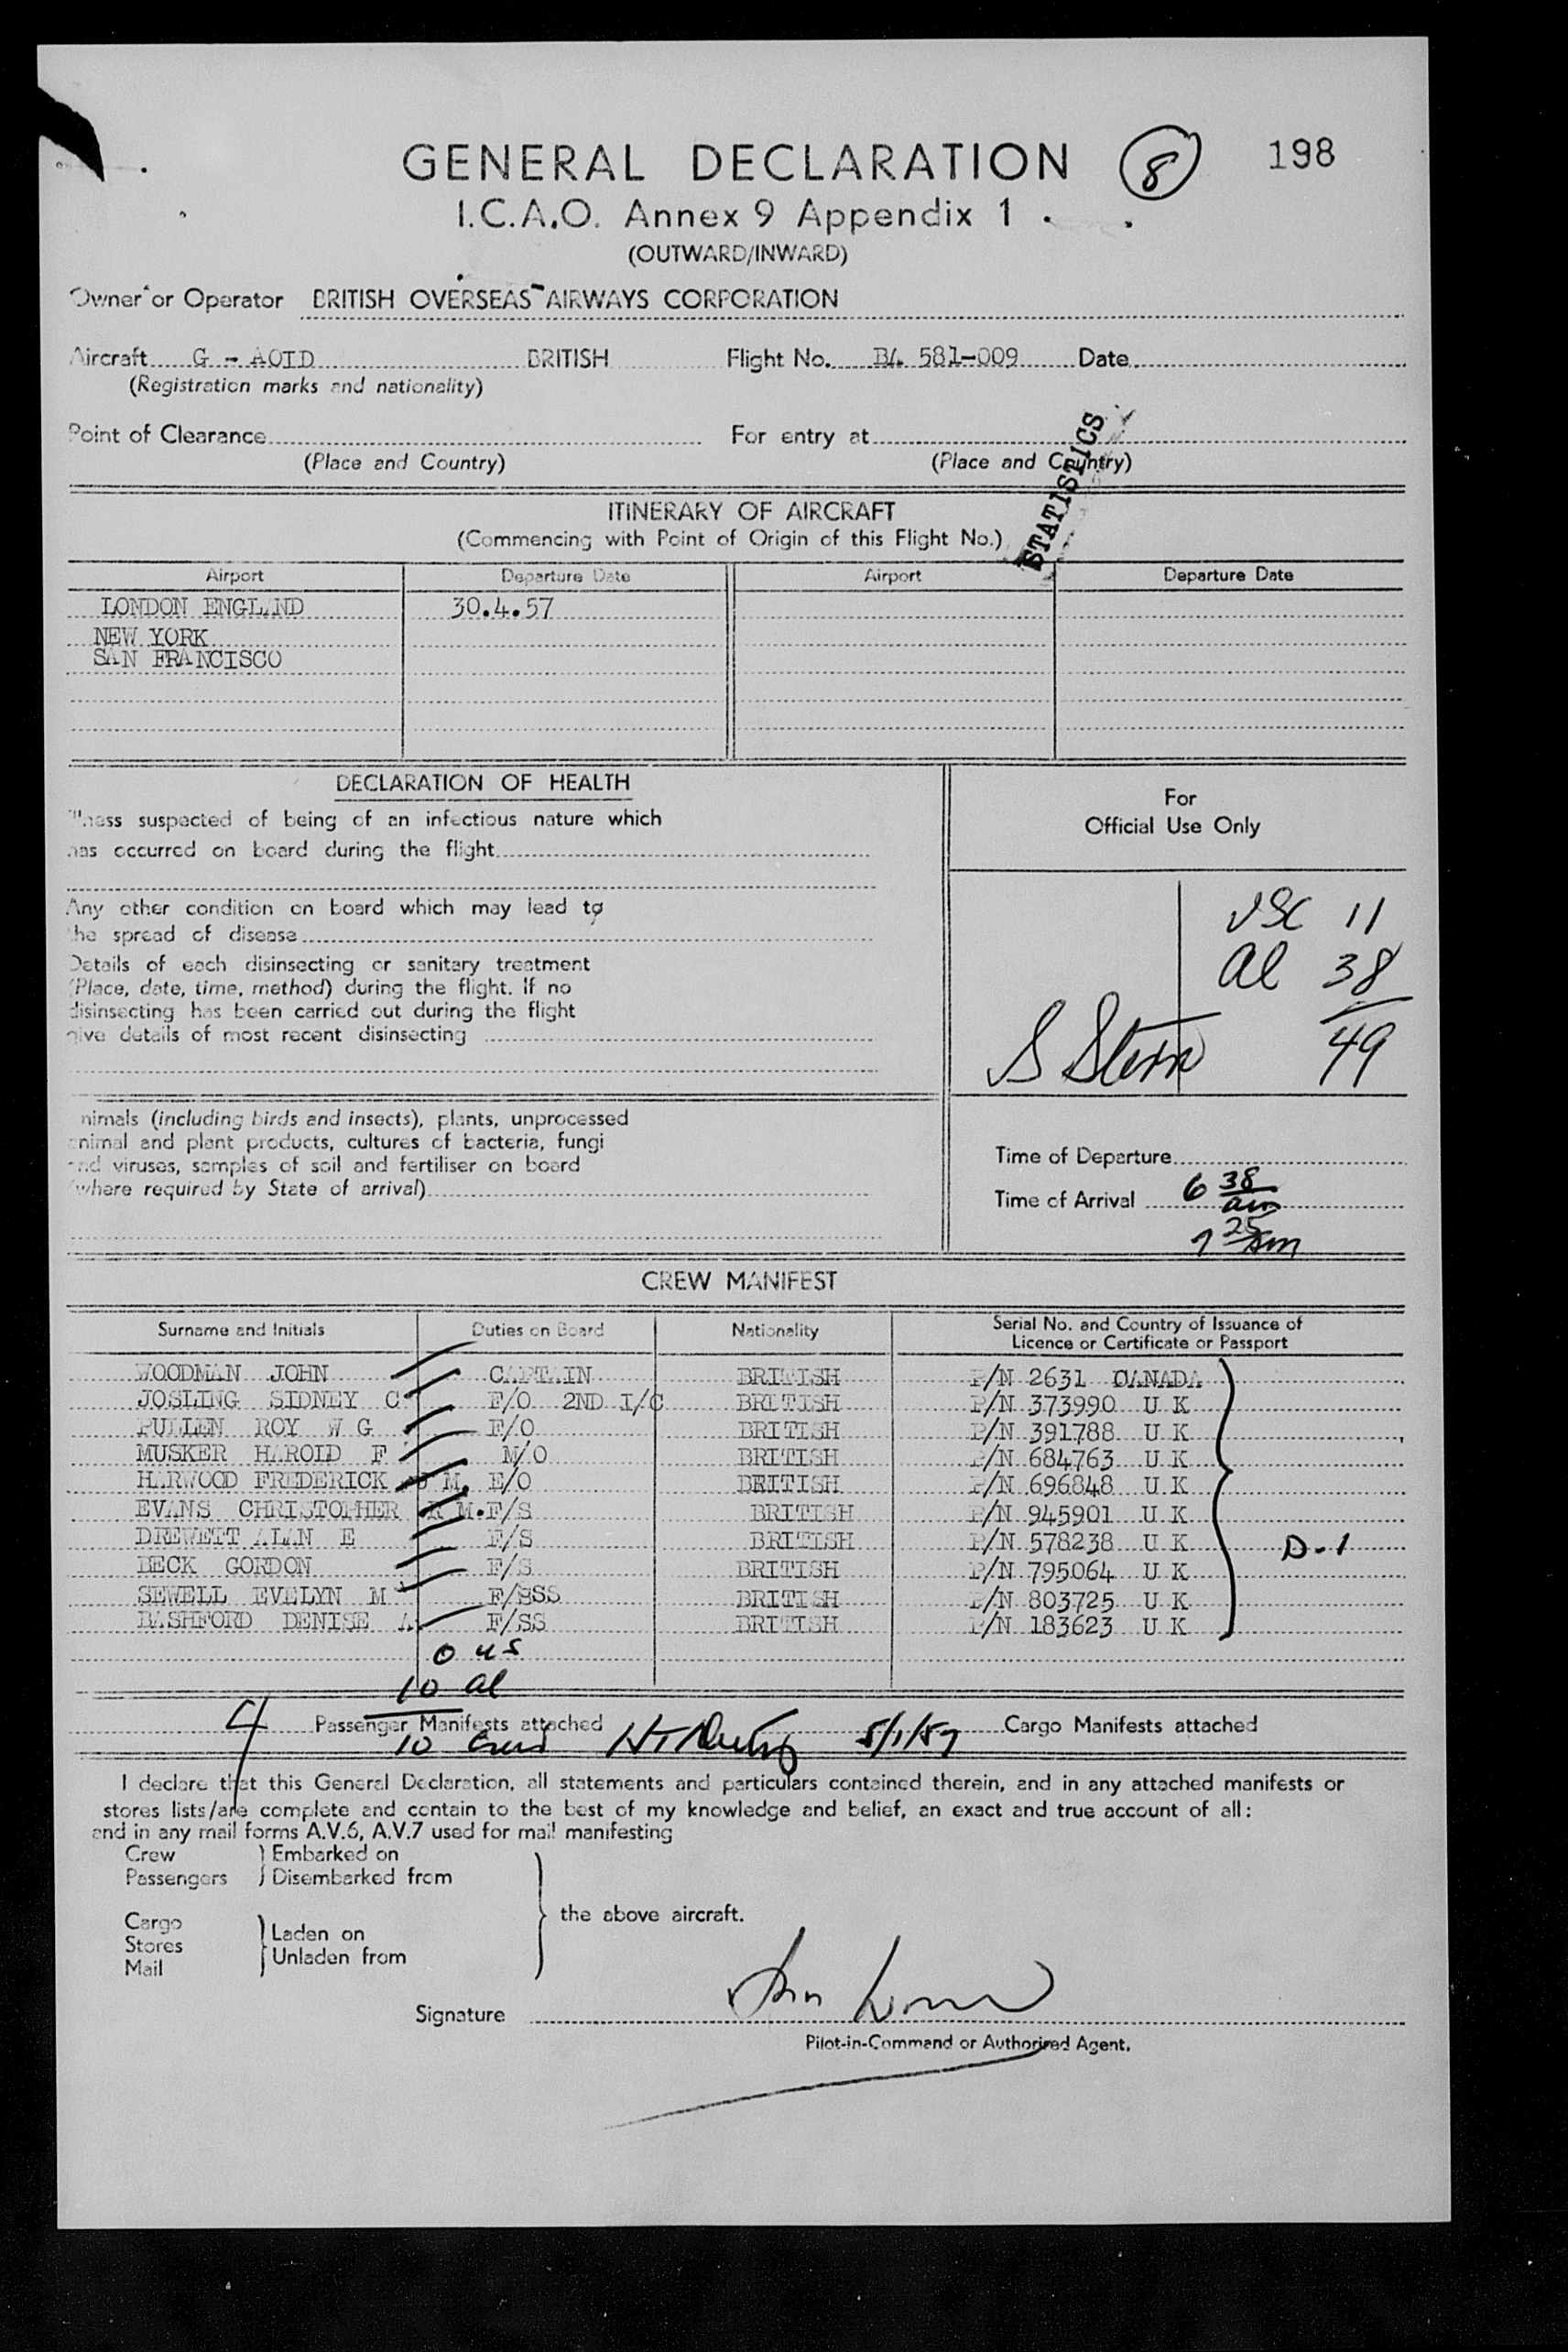 GENERAL DECLARATION 8 198
I.C.A.O. Annex 9 Appendix 1
(OUTWARD/INWARD)
Owner or Operator BRITISH OVERSEAS AIRWAYS CORPORATION
Aircraft G - AOID BRITISH Flight No. BA 581-009 Date
(Registration marks and nationality)
Point of Clearance For entry at
(Place and Country) (Place and Country)
STATISTICS
ITINERARY OF AIRCRAFT
(Commencing with Point of Origin of this Flight No.)
Airport Departure Date Airport Departure Date
LONDON ENGLAND 30.4.57
NEW YORK
SAN FRANCISCO
DECLARATION OF HEALTH
Illness suspected of being of an infectious nature which
has occurred on board during the flight
Any other condition on board which may lead to
the spread of disease
Details of each disinsecting or sanitary treatment
(Place, date, time, method) during the flight. If no
disinsecting has been carried out during the flight
give details of most recent disinsecting
For
Official Use Only
USC 11
al 38
49
S Stern
Animals (including birds and insects), plants, unprocessed
animal and plant products, cultures of bacteria, fungi
and viruses, samples of soil and fertiliser on board
(where required by State of arrival)
Time of Departure
Time of Arrival 6 38 am
7 25 am
CREW MANIFEST
Surname and Initials Duties on Board Nationality Serial No. and Country of Issuance of
Licence or Certificate or Passport
WOODMAN JOHN CAPTAIN BRITISH P/N 2631 CANADA
JOSLING SIDNEY C F/O 2ND I/C BRITISH P/N 373990 U K
PULLEN ROY W G F/O BRITISH P/N 391788 U K
MUSKER HAROLD F N/O BRITISH P/N 684763 U K
HARWOOD FREDERICK J M. E/O BRITISH P/N 696848 U K
EVANS CHRISTOPHER R M. F/S BRITISH P/N 945901 U K
DREWETT ALAN E F/S BRITISH P/N 578238 U K D-1
BECK GORDON F/S BRITISH P/N 795064 U K
SEWELL EVELYN M F/SSS BRITISH P/N 803725 U K
BASHFORD DENISE A F/SS BRITISH P/N 183623 U K
0 us
10 al
4 Passenger Manifests attached Cargo Manifests attached
10 5/1/57
I declare that this General Declaration, all statements and particulars contained therein, and in any attached manifests or
stores lists/are complete and contain to the best of my knowledge and belief, an exact and true account of all:
and in any mail forms A.V.6, A.V.7 used for mail manifesting
Crew Embarked on
Passengers Disembarked from
the above aircraft.
Cargo
Stores Laden on
Mail Unladen from
Signature John
Pilot-in-Command or Authorized Agent.